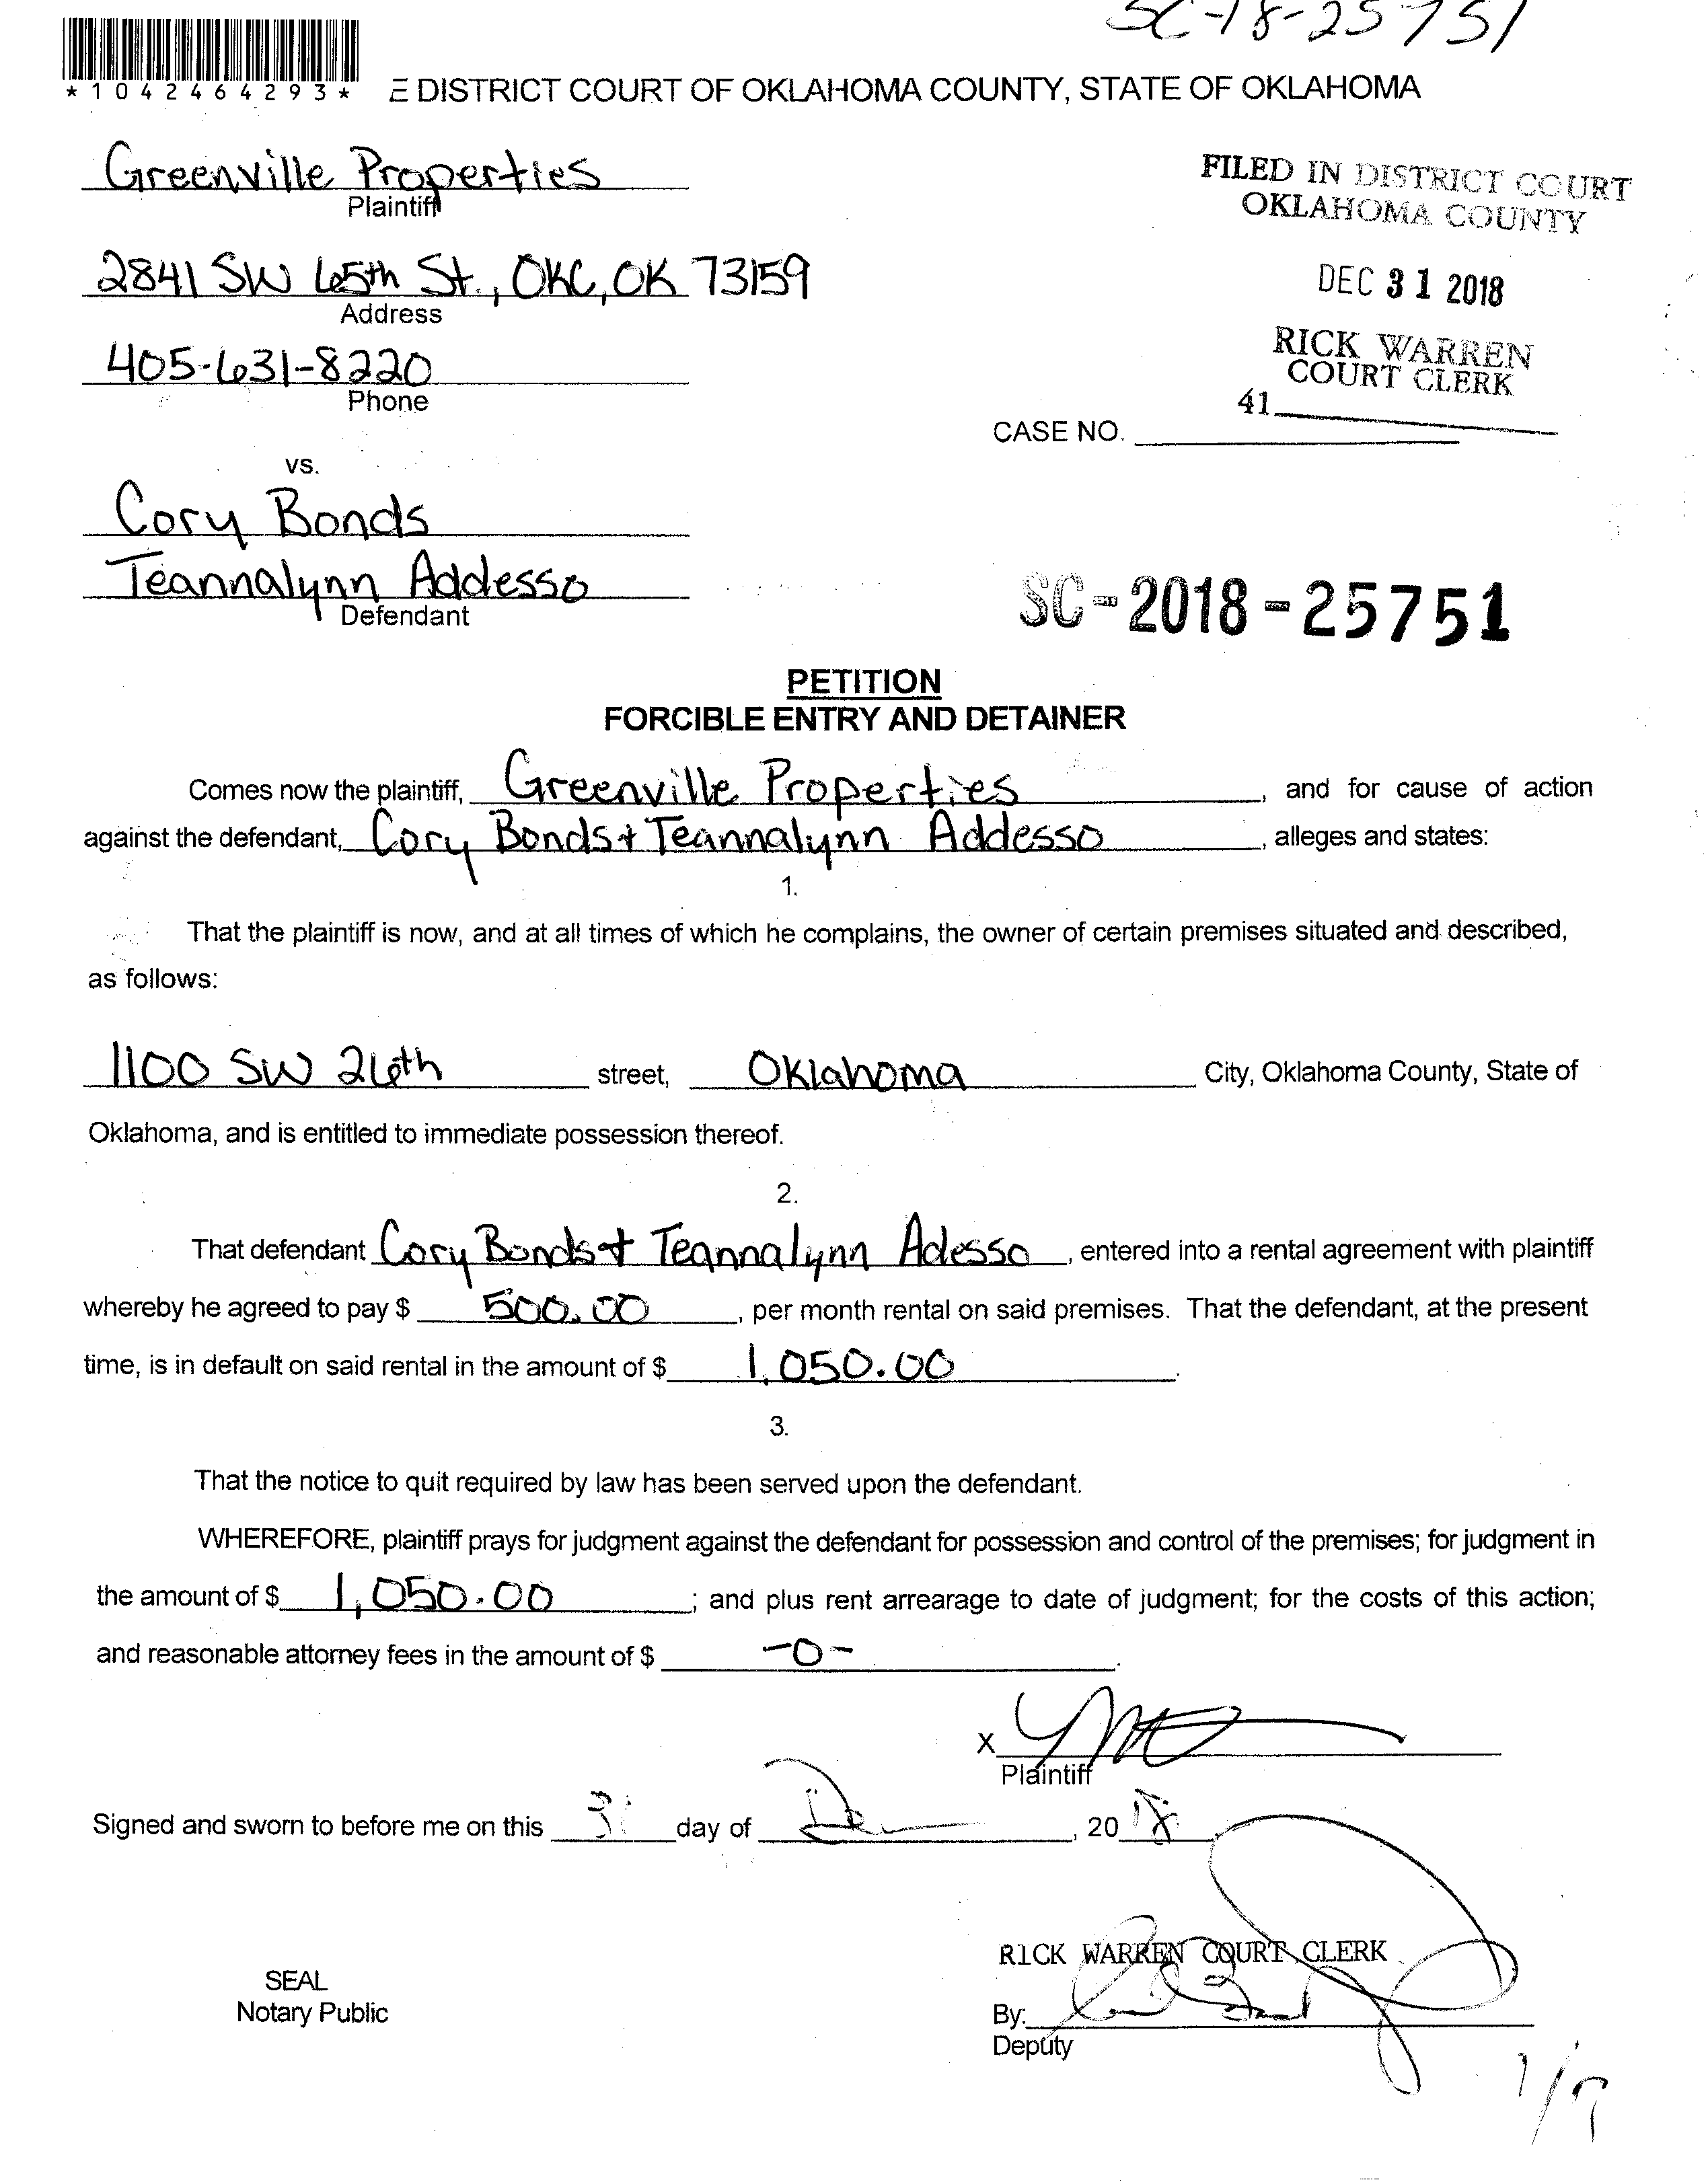 SC-18-25751
*1042464293*
E DISTRICT COURT OF OKLAHOMA COUNTY, STATE OF OKLAHOMA
Greenville Properties
Plaintiff
FILED IN DISTRICT COURT
OKLAHOMA COUNTY
2841 SW 65th St., OKC, OK 73159
Address
DEC 31 2018
405-631-8220
Phone
RICK WARREN
COURT CLERK
41
CASE NO.
vs.
Cory Bonds
Teannalynn Addesso
Defendant
SC-2018-25751
PETITION
FORCIBLE ENTRY AND DETAINER
Comes now the plaintiff, Greenville Properties, and for cause of action
against the defendant, Cory Bonds + Teannalynn Addesso, alleges and states:
1.
That the plaintiff is now, and at all times of which he complains, the owner of certain premises situated and described,
as follows:
1100 SW 26th street, Oklahoma City, Oklahoma County, State of
Oklahoma, and is entitled to immediate possession thereof.
2.
That defendant Cory Bonds + Teannalynn Adesso, entered into a rental agreement with plaintiff
whereby he agreed to pay $ 500.00, per month rental on said premises. That the defendant, at the present
time, is in default on said rental in the amount of $ 1,050.00.
3.
That the notice to quit required by law has been served upon the defendant.
WHEREFORE, plaintiff prays for judgment against the defendant for possession and control of the premises; for judgment in
the amount of $ 1,050.00; and plus rent arrearage to date of judgment; for the costs of this action;
and reasonable attorney fees in the amount of $ -0-.
X
Plaintiff
Signed and sworn to before me on this 31 day of Dec, 2018
RICK WARREN COURT CLERK
SEAL
Notary Public
By:
Deputy